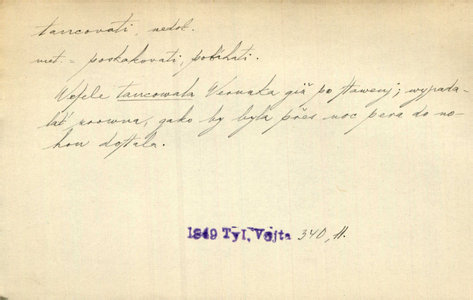 tancovati, nedok.
met. = poskakovati, pobíhati.
Wesele tancowala Verunka giž po stawenj; wypada-
lať zrowna, gako by byla přes noc pera do no-
hou dostala.
1849 Tyl, Vojta 340, H.